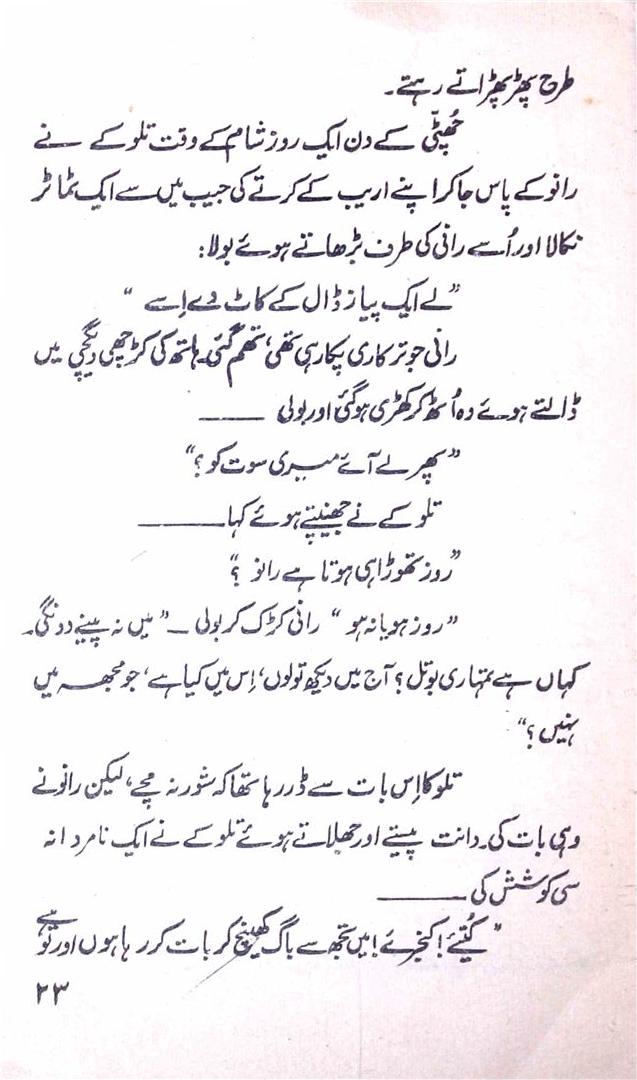 طرح پھڑپھڑاتے رہتے۔
چُھٹّی کے دن ایک روز شام کے وقت تلوکے نے
رانو کے پاس جا کر اپنے اریب کے کرتے کی جیب میں سے ایک ٹماٹر
نکالا اور اُسے رانی کی طرف بڑھاتے ہوئے بولا:
”لے ایک پیاز ڈال کے کاٹ دے اِسے“
رانی جو ترکاری پکا رہی تھی، تھم گئی۔ ہاتھ کی کڑچھی دیگچی میں
ڈالتے ہوئے وہ اُٹھ کر کھڑی ہو گئی اور بولی ——
”پھر لے آئے میری سوت کو؟“
تلوکے نے جھینپتے ہوئے کہا ——
”روز تھوڑا ہی ہوتا ہے رانو ؟“
”روز ہو یا نہ ہو“ رانی کڑک کر بولی — ”میں نہ پینے دونگی۔
کہاں ہے تمہاری بوتل؟ آج میں دیکھ تو لوں، اِس میں کیا ہے، جو مجھ میں
نہیں؟“
تلوکا اِس بات سے ڈر رہا تھا کہ شور نہ مچے، لیکن رانو نے
وہی بات کی۔ دانت پیستے اور جھلاتے ہوئے تلوکے نے ایک نامردانہ
سی کوشش کی ——
”کُتیے! کنجرئے! میں تجھ سے باگ کھینچ کر بات کر رہا ہوں اور تو ہے
۲۳